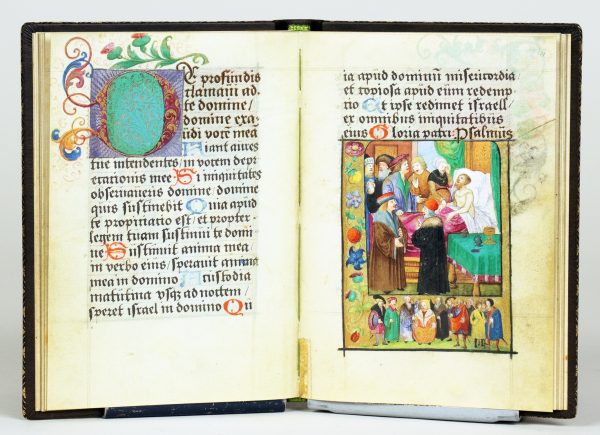 DE profundis
clamaui ad
te domine /
domine exa
udi vocem mea
Fiant aures
tue intendentes in vocem dep
cationis mee Si iniquitates
observaueris domine domine
quis sustinebit Quia apud
te propitiatio est et propter
legem tuam sustinui te domi
ne Sustinuit anima mea /
in verbo eius / sperauit anima
mea in domino A custodia
matutina usqz ad noctem /
speret israel in domino Qu
ia apud dominū misericordia
et copiosa apud eūm redemp
tio Et ipse redimet israell /
ex omnibus iniquitatibus
eius Gloria patri Psalmus